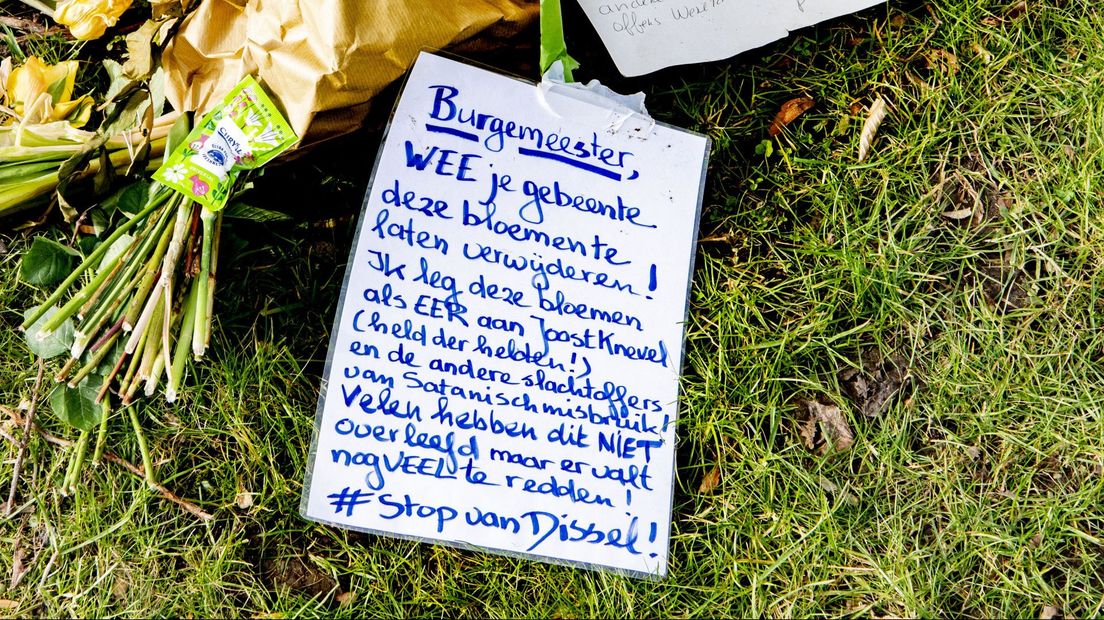 offers
Burgemeester,
WEE je gebeente
deze bloemente
laten verwijderen!
Ik leg deze bloemen
als EER aan Joost Knevel
(held der helden!)
en de andere slachtoffers
van Satanisch misbruik!
Velen hebben dit NIET
overleefd maar er valt
nog VEEL te redden!
#Stop van Dissel!